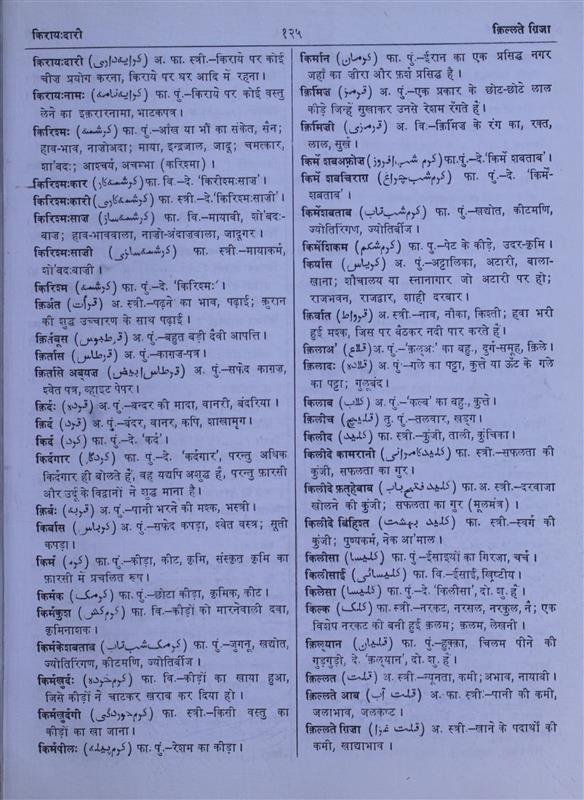 किरायःदारी
१२५
क़िल्लते ग़िज़ा
किरायःदारी (کرایہ داری) अ. फा. स्त्री.–किराये पर कोई
चीज़ प्रयोग करना, किराये पर घर आदि में रहना।
किरायःनामः (کرایہ نامہ) अ. फा. पुं.–किराये पर कोई वस्तु
लेने का इक़रारनामा, भाटकपत्र।
किरिश्मः (کرشمہ) फा. पुं.–आँख या भौं का संकेत, सैन;
हाव-भाव, नाज़ोअदा; माया, इन्द्रजाल, जादू; चमत्कार,
शा'बदः; आश्चर्य, अचम्भा (करिश्मा)।
किरिश्मःकार (کرشمہ کار) फा. वि.–दे. 'किरीश्मःसाज़'।
किरिश्मःकारी (کرشمہ کاری) फा. स्त्री.–दे. 'किरिश्मःसाज़ी'।
किरिश्मःसाज़ (کرشمہ ساز) फा. वि.–मायावी, शो'बदः-
बाज़; हाव-भाववाला, नाज़ो-अंदाज़वाला, जादूगर।
किरिश्मःसाज़ी (کرشمہ سازی) फा. स्त्री.–मायाकर्म,
शो'बदःबाज़ी।
किरिश्म (کرشمہ) फा. पुं.–दे. 'किरिश्मः'।
क़िर्अत (قرأت) अ. स्त्री.–पढ़ने का भाव, पढ़ाई; क़ुरान
की शुद्ध उच्चारण के साथ पढ़ाई।
क़िर्तबूस (قرطبوس) अ. पुं.–बहुत बड़ी दैवी आपत्ति।
क़िर्तास (قرطاس) अ. पुं.–काग़ज़-पत्र।
क़िर्तासे अब्यज़ (قرطاس ابیض) अ. पुं.–सफ़ेद काग़ज़,
श्वेत पत्र, व्हाइट पेपर।
क़िर्दः (قردہ) अ. पुं.–बन्दर की मादा, वानरी, बंदरिया।
क़िर्द (قرد) अ. पुं.–बंदर, वानर, कपि, शाखामृग।
किर्द (کرد) फा. पुं.–दे. 'कर्द'।
किर्दगार (کردگار) फा. पुं.–दे. 'कर्दगार', परन्तु अधिक
किर्दगार ही बोलते हैं, वह यद्यपि अशुद्ध है, परन्तु फ़ारसी
और उर्दू के विद्वानों ने शुद्ध माना है।
क़िर्बः (قربہ) अ. पुं.–पानी भरने की मश्क, भस्त्री।
किर्बास (کرباس) अ. पुं.–सफ़ेद कपड़ा, श्वेत वस्त्र; सूती
कपड़ा।
किर्म (کرم) फा. पुं.–कीड़ा, कीट, कृमि, संस्कृत कृमि का
फ़ारसी में प्रचलित रूप।
किर्मक (کرمک) फा. पुं.–छोटा कीड़ा, कृमिक, कीट।
किर्मकुश (کرم کش) फा. वि.–कीड़ों को मारनेवाली दवा,
कृमिनाशक।
किर्मकेशबताब (کرمک شب تاب) फा. पुं.–जुगनू, खद्योत,
ज्योतिरिगण, कीटमणि, ज्योतिर्बीज।
किर्मख़ुर्दः (کرم خوردہ) फा. वि.–कीड़ों का खाया हुआ,
जिसे कीड़ों ने चाटकर ख़राब कर दिया हो।
किर्मख़ुर्दगी (کرم خوردگی) फा. स्त्री.–किसी वस्तु का
कीड़ों का खा जाना।
किर्मपीलः (کرم پیلہ) फा. पुं.–रेशम का कीड़ा।
किर्मान (کرمان) फा. पुं.–ईरान का एक प्रसिद्ध नगर
जहाँ का ज़ीरा और फ़र्श प्रसिद्ध है।
क़िर्मिज़ (قرمز) अ. पुं.–एक प्रकार के छोटे-छोटे लाल
कीड़े जिन्हें सुखाकर उनसे रेशम रँगते हैं।
क़िर्मिज़ी (قرمزی) अ. वि.–क़िर्मिज़ के रंग का, रक्त,
लाल, सुर्ख़।
किर्मे शबअफ़्रोज़ (کرم شب افروز) फा.पुं.–दे.'किर्मे शबताब'।
किर्मे शबचिराग़ (کرم شب چراغ) फा. पुं.–दे. 'किर्मे-
शबताब'।
किर्मेशबताब (کرم شب تاب) फा. पुं.–खद्योत, कीटमणि,
ज्योतिरिंगण, ज्योतिर्बीज।
किर्मेशिकम (کرم شکم) फा. पुं.–पेट के कीड़े, उदर-कृमि।
किर्यास (کریاس) अ. पुं.–अट्टालिका, अटारी, बाला-
ख़ाना; शौचालय या स्नानागार जो अटारी पर हो;
राजभवन, राजद्वार, शाही दरबार।
क़िर्वात (قرواط) अ. स्त्री.–नाव, नौका, किश्ती; हवा भरी
हुई मश्क, जिस पर बैठकर नदी पार करते हैं।
क़िलाअ' (قلاع) अ. पुं.–'क़ल्अः' का बहु., दुर्ग-समूह, क़िले।
क़िलादः (قلادہ) अ. पुं.–गले का पट्टा, कुत्ते या ऊँट के गले
का पट्टा; गुलूबंद।
किलाब (کلاب) अ. पुं.–'कल्ब' का बहु., कुत्ते।
क़िलीच (قلیچ) तु. पुं.–तलवार, खड्ग।
किलीद (کلید) फा. स्त्री.–कुंजी, ताली, कुंचिका।
किलीदे कामरानी (کلید کامرانی) फा. स्त्री.–सफलता की
कुंजी, सफलता का गुर।
किलीदे फ़त्हेबाब (کلید فتح باب) फा.अ. स्त्री.–दरवाज़ा
खोलने की कुंजी; सफलता का गुर (मूलमंत्र)।
किलीदे बिहिश्त (کلید بہشت) फा. स्त्री.–स्वर्ग की
कुंजी; पुण्यकर्म, नेक आ'माल।
किलीसा (کلیسا) फा. पुं.–ईसाइयों का गिरजा, चर्च।
किलीसाई (کلیسائی) फा. वि.–ईसाई, ख्रिष्टीय।
किलेसा (کلیسا) फा. पुं.–दे. 'किलीसा', दो. शु. हैं।
किल्क (کلک) फा. स्त्री.–नरकट, नरसल, नरकुल, नै; एक
विशेष नरकट की बनी हुई क़लम; क़लम, लेखनी।
क़िल्यान (قلیان) फा. पुं.–हुक़्क़ा, चिलम पीने की
गुड़गुड़ी, दे. 'क़ल्यान', दो. शु. हैं।
क़िल्लत (قلت) अ. स्त्री.–न्यूनता, कमी; अभाव, नायाबी।
क़िल्लते आब (قلت آب) अ. फा. स्त्री.–पानी की कमी,
जलाभाव, जलकष्ट।
क़िल्लते ग़िज़ा (قلت غزا) अ. स्त्री.–खाने के पदार्थों की
कमी, खाद्याभाव।